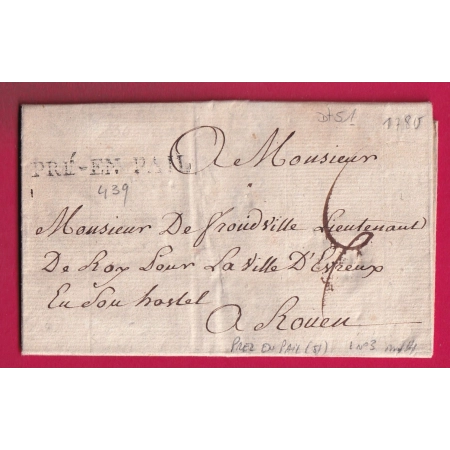 dt 51 1780
A Monsieur
PRÉ-EN PAIL
439
Monsieur De froidville Lieutenant
De Roy Pour La Ville D'Evreux
En Son hostel
A Rouen
PREZ EN PAIL (51) L N°3